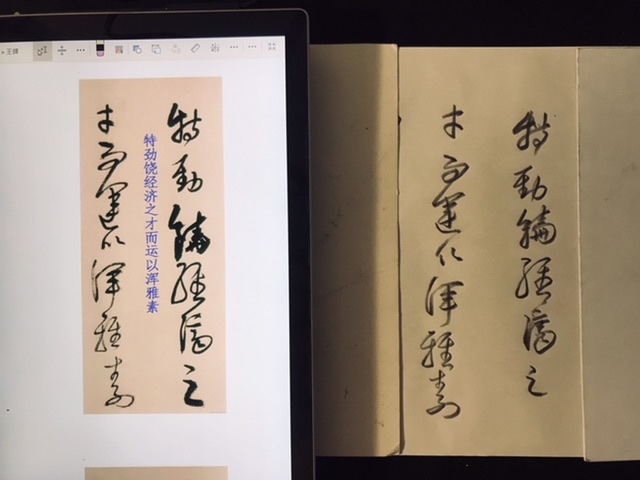 特勁饒經濟之
特劲饶经济之才而运以浑雅素
才而運以渾雅素
特勁饒經濟之
才而運以渾雅素